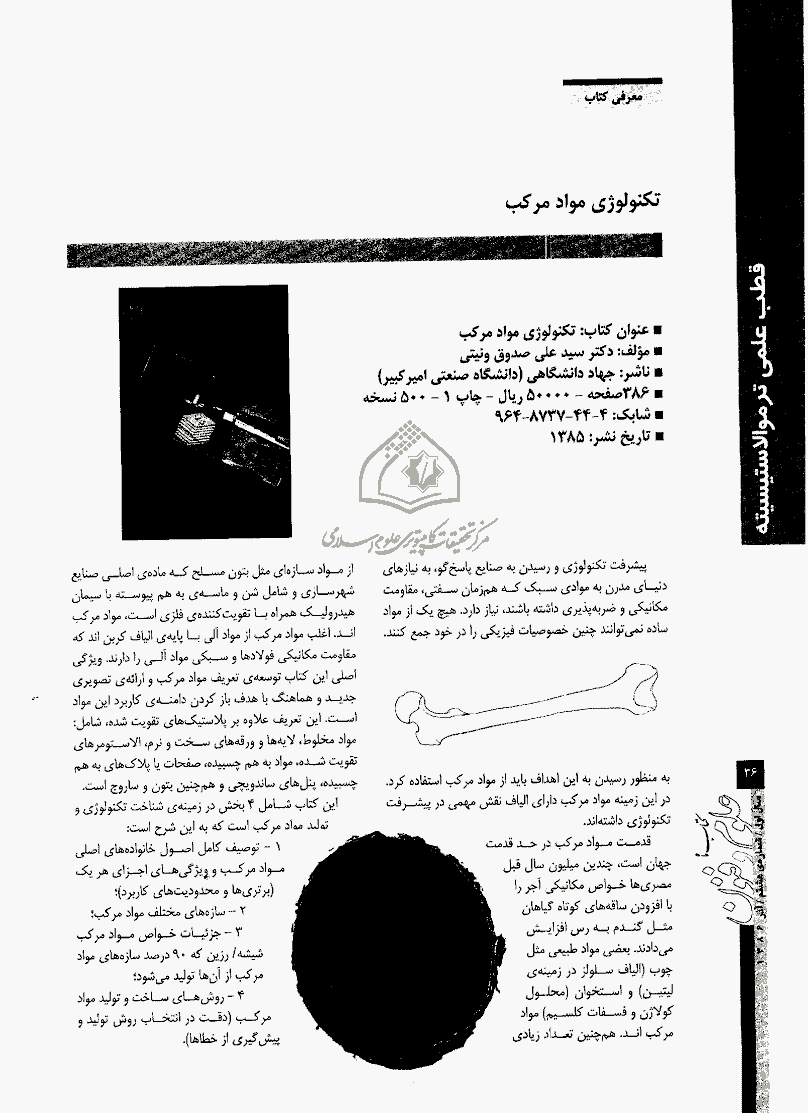 معرفی کتاب
تکنولوژی مواد مرکب
قطب علمی ترموالاستیسیته
■ عنوان کتاب: تکنولوژی مواد مرکب
■ مؤلف: دکتر سید علی صدوق ونینی
■ ناشر: جهاد دانشگاهی (دانشگاه صنعتی امیرکبیر)
■ ۳۸۶صفحه - ۵۰۰۰۰ ریال - چاپ ۱ - ۵۰۰ نسخه
■ شابک: ۴-۴۴-۸۷۳۷-۹۶۴
■ تاریخ نشر: ۱۳۸۵
مرکز تحقیقات کامپیوتری علوم اسلامی
پیشرفت تکنولوژی و رسیدن به صنایع پاسخ‌گو، به نیازهای
دنیـای مدرن به موادی سـبک کـه هم‌زمان سـفتی، مقاومت
مکانیکی و ضربه‌پذیری داشته باشند، نیاز دارد. هیچ یک از مواد
ساده نمی‌توانند چنین خصوصیات فیزیکی را در خود جمع کنند.
به منظور رسیدن به این اهداف باید از مواد مرکب استفاده کرد.
در این زمینه مواد مرکب دارای الیاف نقش مهمی در پیشـرفت
تکنولوژی داشته‌اند.
قدمـت مـواد مرکب در حـد قدمت
جهان است، چندین میلیون سال قبل
مصری‌ها خـواص مکانیکی آجر را
با افزودن ساقه‌های کوتاه گیاهان
مثـل گنـدم بـه رس افزایـش
می‌دادند. بعضی مواد طبیعی مثل
چوب (الیاف سـلولز در زمینه‌ی
لیتیـن) و اسـتخوان (محلـول
کولاژن و فسـفات کلسـیم) مواد
مرکب انـد. هم‌چنین تعـداد زیادی
از مـواد سـازه‌ای مثل بتون مسـلح کـه ماده‌ی اصلـی صنایع
شهرسـازی و شامل شن و ماسـه‌ی به هم پیوسـته با سیمان
هیدرولیـک همراه بـا تقویت‌کننده‌ی فلزی اسـت، مواد مرکب
انـد. اغلب مواد مرکب از مواد آلی بـا پایه‌ی الیاف کربن اند که
مقاومت مکانیکی فولادها و سـبکی مواد آلـی را دارند. ویژگی
اصلی این کتاب توسعه‌ی تعریف مواد مرکب و ارائه‌ی تصویری
جدیـد و هماهنگ با هدف باز کردن دامنـه‌ی کاربرد این مواد
اسـت. این تعریف علاوه بر پلاستیک‌های تقویت شده، شامل:
مواد مخلوط، لایه‌ها و ورقه‌های سـخت و نرم، الاسـتومرهای
تقویت شـده، مواد به هم چسبیده، صفحات یا پلاک‌های به هم
چسبیده، پنل‌های ساندویچی و هم‌چنین بتون و ساروج است.
این کتاب شـامل ۴ بخش در زمینه‌ی شناخت تکنولوژی و
تولید مواد مرکب است که به این شرح است:
۱ - توصیف کامل اصـول خانواده‌های اصلی
مـواد مرکـب و ویژگی‌هـای اجـزای هر یک
(برتری‌ها و محدودیت‌های کاربرد)؛
۲ - سازه‌های مختلف مواد مرکب؛
۳ - جزئیـات خـواص مـواد مرکب
شیشه/ رزین که ۹۰ درصد سازه‌های مواد
مرکب از آن‌ها تولید می‌شود؛
۴ - روش‌هـای سـاخت و تولید مواد
مرکـب (دقـت در انتخـاب روش تولید و
پیش‌گیری از خطاها).
۳۶
کتاب ماه
علوم و فنون